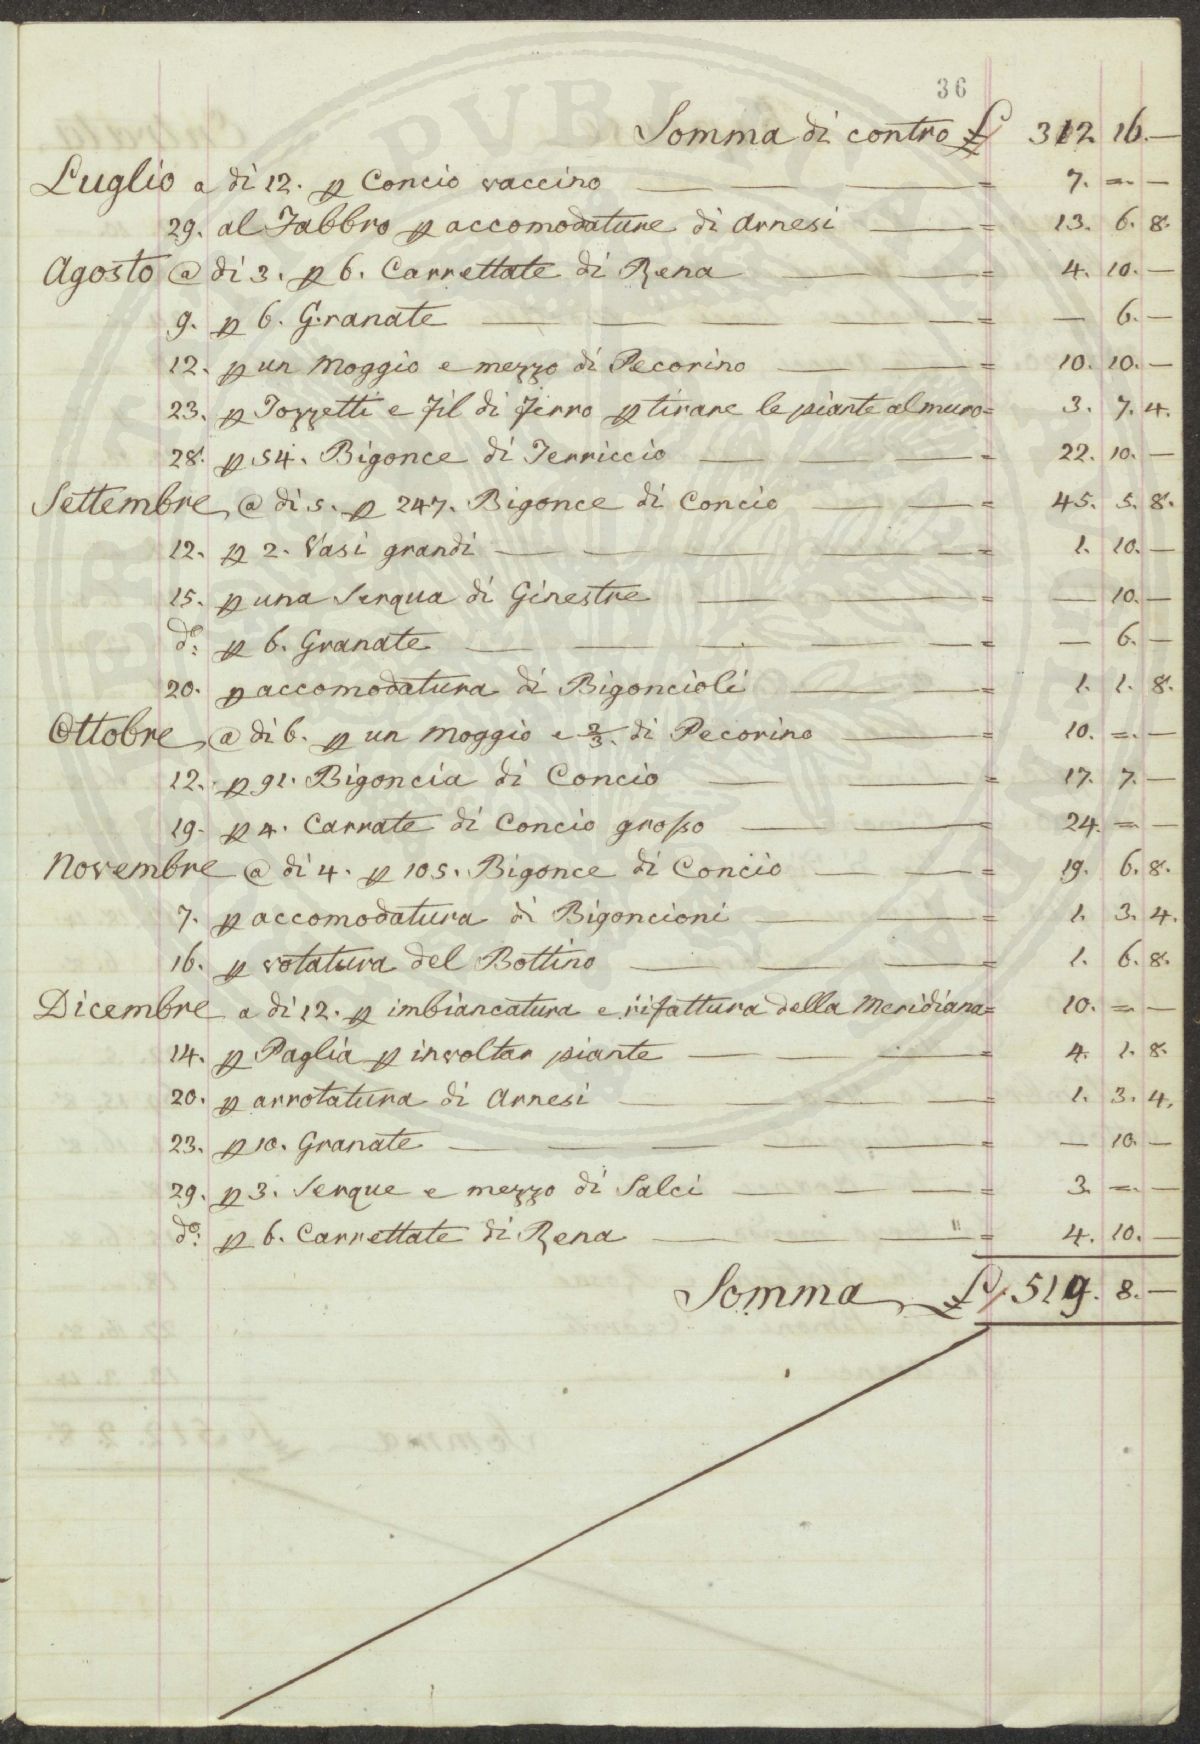 36
Somma di contro £ 312. 16. —
Luglio a di 12. p Concio vaccino — = 7. =. —
29. al Fabbro p accomodature di Arnesi — = 13. 6. 8.
Agosto @ di 3. p 6. Carrettate di Rena — = 4. 10. —
9. p 6. Granate — = — 6. —
12. p un Moggio e mezzo di Pecorino — = 10. 10. —
23. p Tozzetti e Fil di Ferro p tirare le piante al muro = 3. 7. 4.
28. p 54. Bigonce di Terriccio — = 22. 10. —
Settembre @ di 5. p 247. Bigonce di Concio — = 45. 5. 8.
12. p 2. Vasi grandi — = 1. 10. —
15. p una Serqua di Ginestre — = — 10. —
do: p 6. Granate — = — 6. —
20. p accomodatura di Bigoncioli — = 1. 1. 8.
Ottobre @ di 6. p un Moggio e 2/3. di Pecorino — = 10. =. —
12. p 91. Bigoncia di Concio — = 17. 7. —
19. p 4. Carrate di Concio grosso — = 24. = —
Novembre @ di 4. p 105. Bigonce di Concio — = 19. 6. 8.
7. p accomodatura di Bigoncioni — = 1. 3. 4.
16. p votatura del Bottino — = 1. 6. 8.
Dicembre a di 12. p imbiancatura e rifattura della Meridiana = 10. = —
14. p Paglia p involtar piante — = 4. 1. 8.
20. p arrotatura di Arnesi — = 1. 3. 4.
23. p 10. Granate — = — 10. —
29. p 3. Serque e mezzo di Salci — = 3. =. —
do: p 6. Carrettate di Rena — " = 4. 10. —
Somma £ 519. 8. —